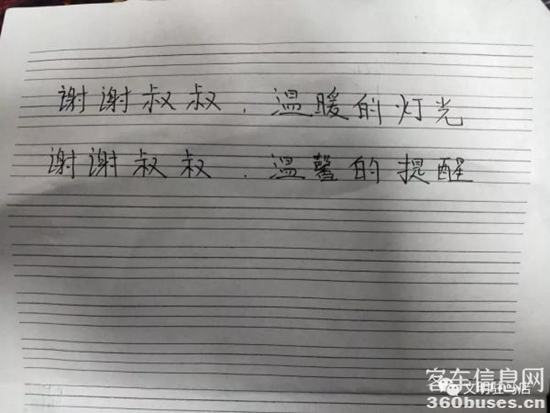 谢谢叔叔．温暖的灯光
谢谢叔叔．温馨的提醒
客车信息网
文明驻马店
360buses.cn